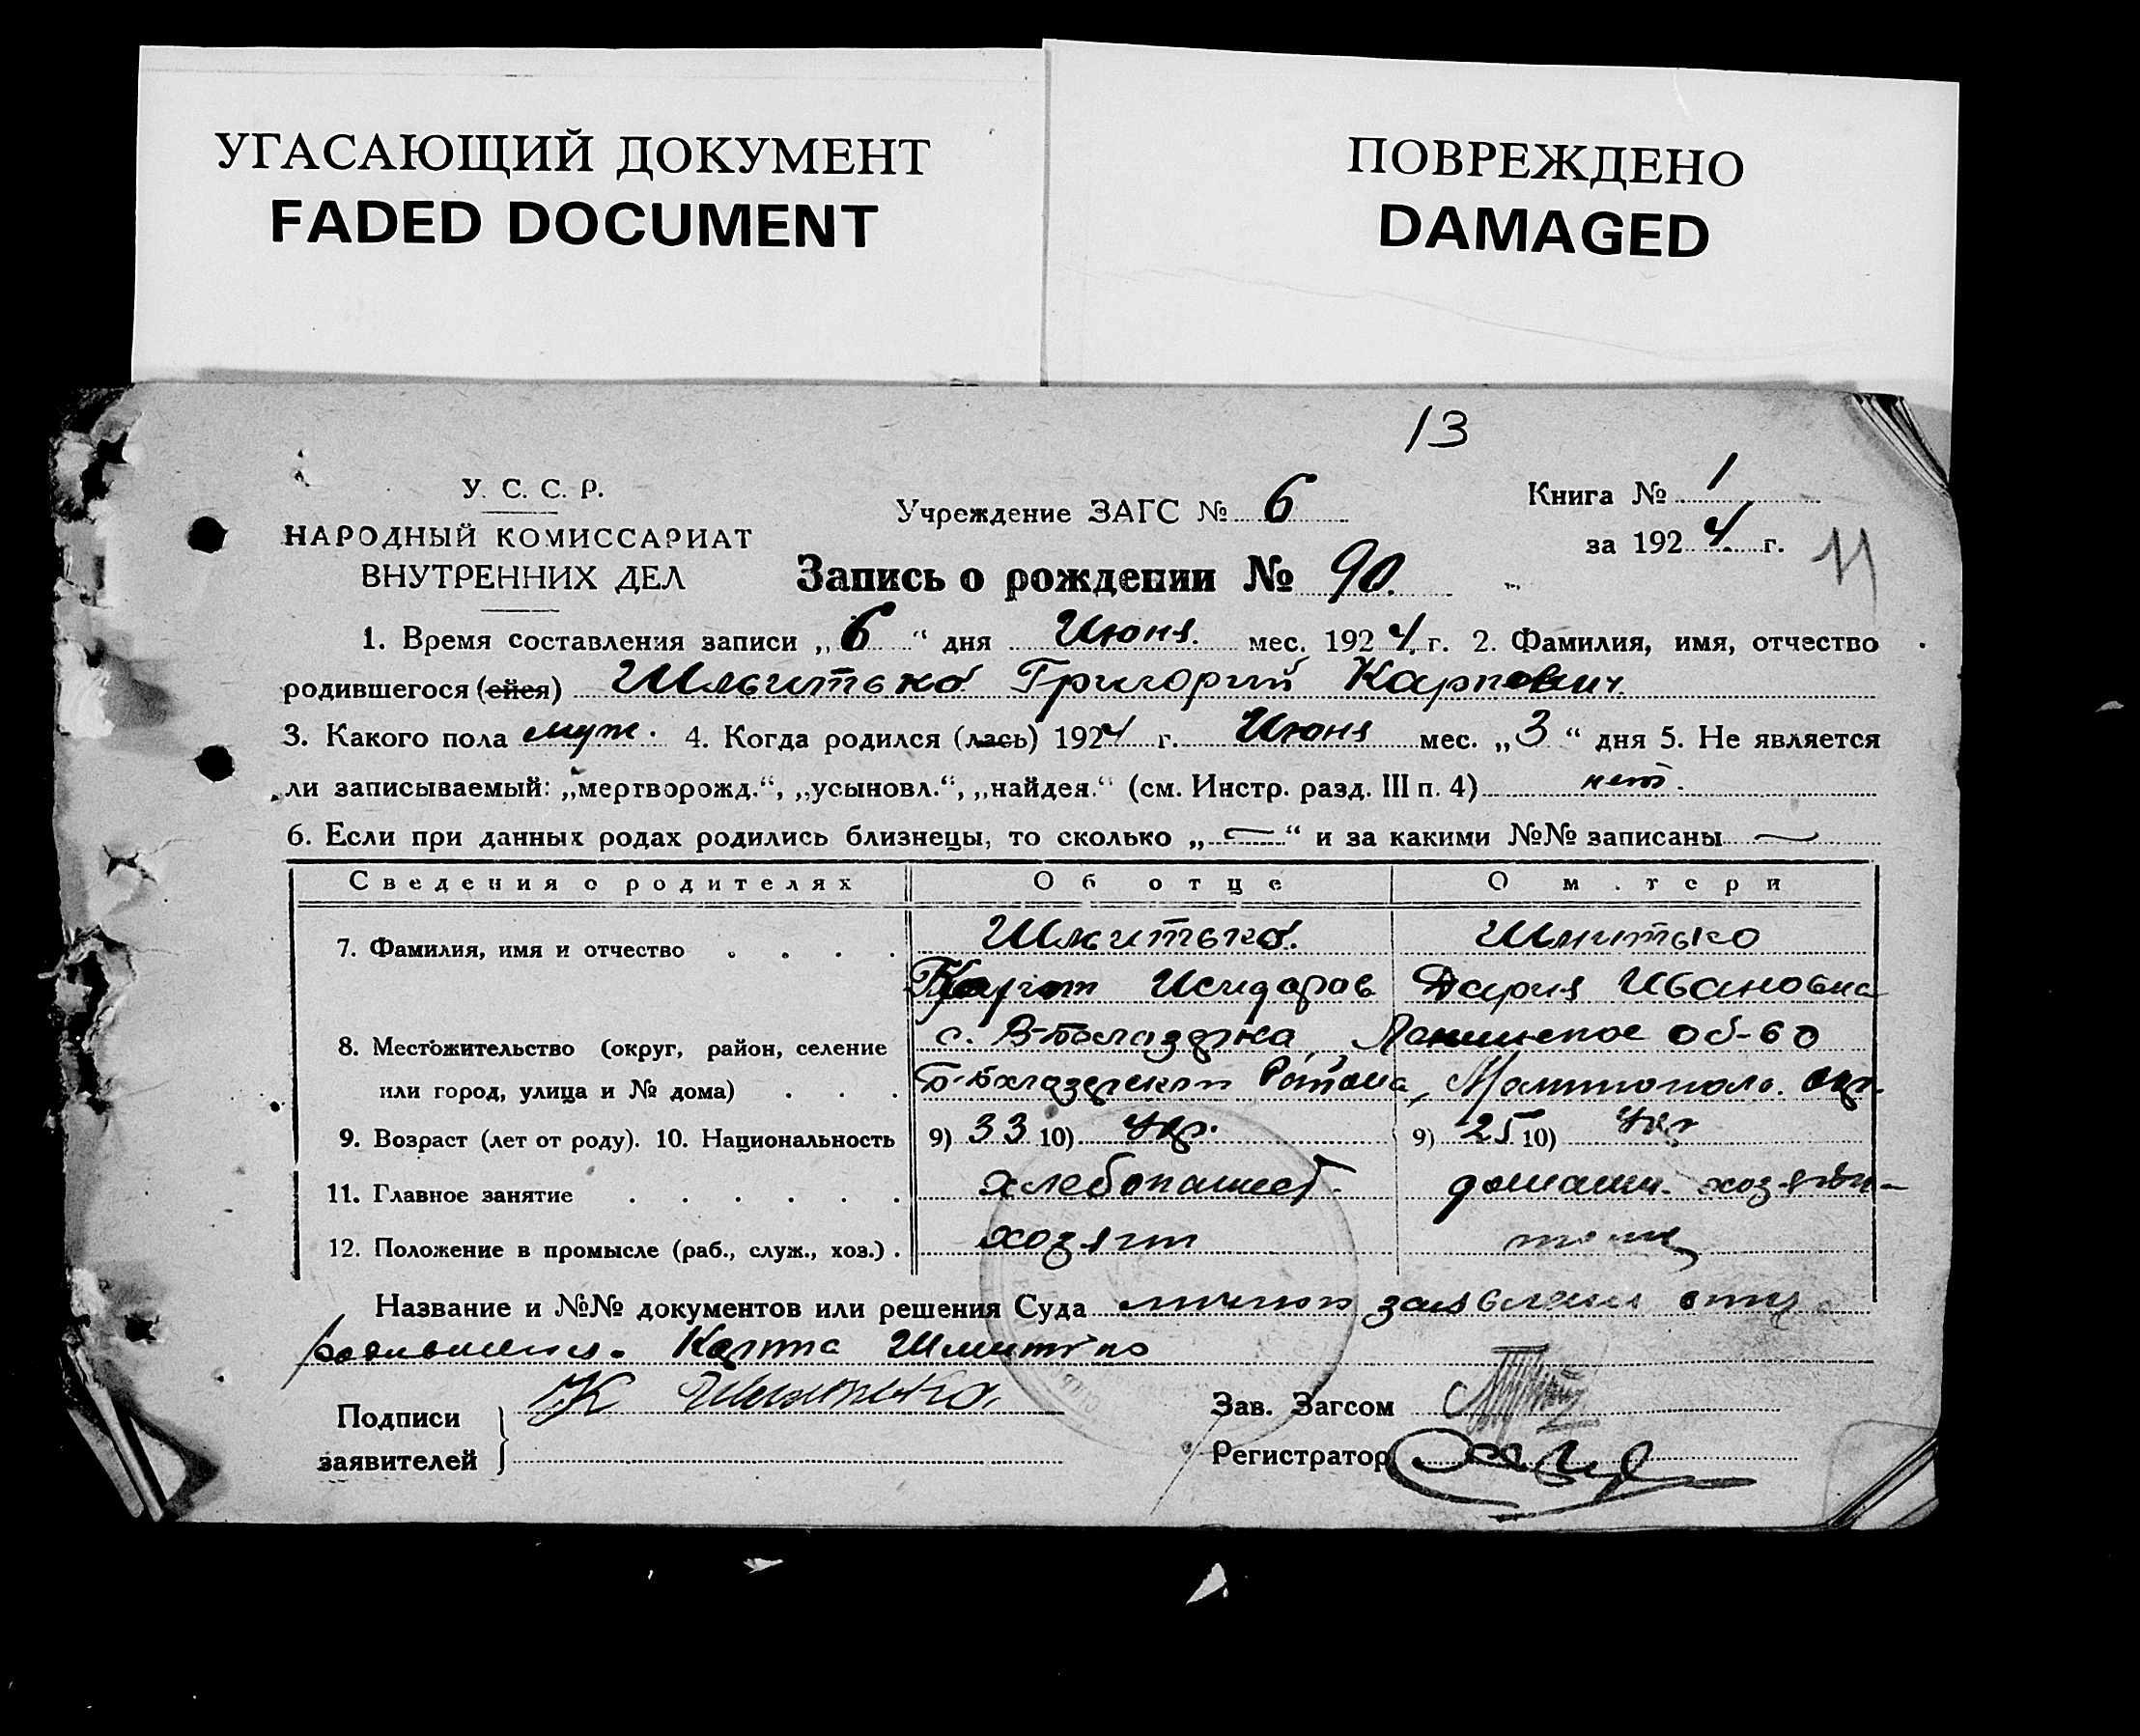 УГАСАЮЩИЙ ДОКУМЕНТ
FADED DOCUMENT
ПОВРЕЖДЕНО
DAMAGED
13
У. С. С. Р.
НАРОДНЫЙ КОМИССАРИАТ
ВНУТРЕННИХ ДЕЛ
Учреждение ЗАГС № 6
Книга № 1
за 1924 г.
11
Запись о рождении № 90.
1. Время составления записи „6“ дня Июня. мес. 1924 г. 2. Фамилия, имя, отчество
родившегося (ейся) Шмитько Григорий Карпович.
3. Какого пола муж. 4. Когда родился (лась) 1924 г. Июня мес. „3“ дня 5. Не является
ли записываемый: „мертворожд.“, „усыновл.“, „найден.“ (см. Инстр. разд. III п. 4) нет.
6. Если при данных родах родились близнецы, то сколько „—“ и за какими №№ записаны —
Сведения о родителях Об отце О м.тери
7. Фамилия, имя и отчество Шмитько. Шмитько
Исидоров Дария Ивановна
8. Местожительство (округ, район, селение с. об-во
или город, улица и № дома) Района, окр.
9. Возраст (лет от роду). 10. Национальность 9) 33 10) Укр. 9) 25 10) Укр
11. Главное занятие хлебопашец домашн. хозяйн-
12. Положение в промысле (раб., служ., хоз.) хозяин тоже
Название и №№ документов или решения Суда заявление отца
Карпа Шмитько
Подписи
заявителей
К Шмитько
Зав. Загсом
Регистратор